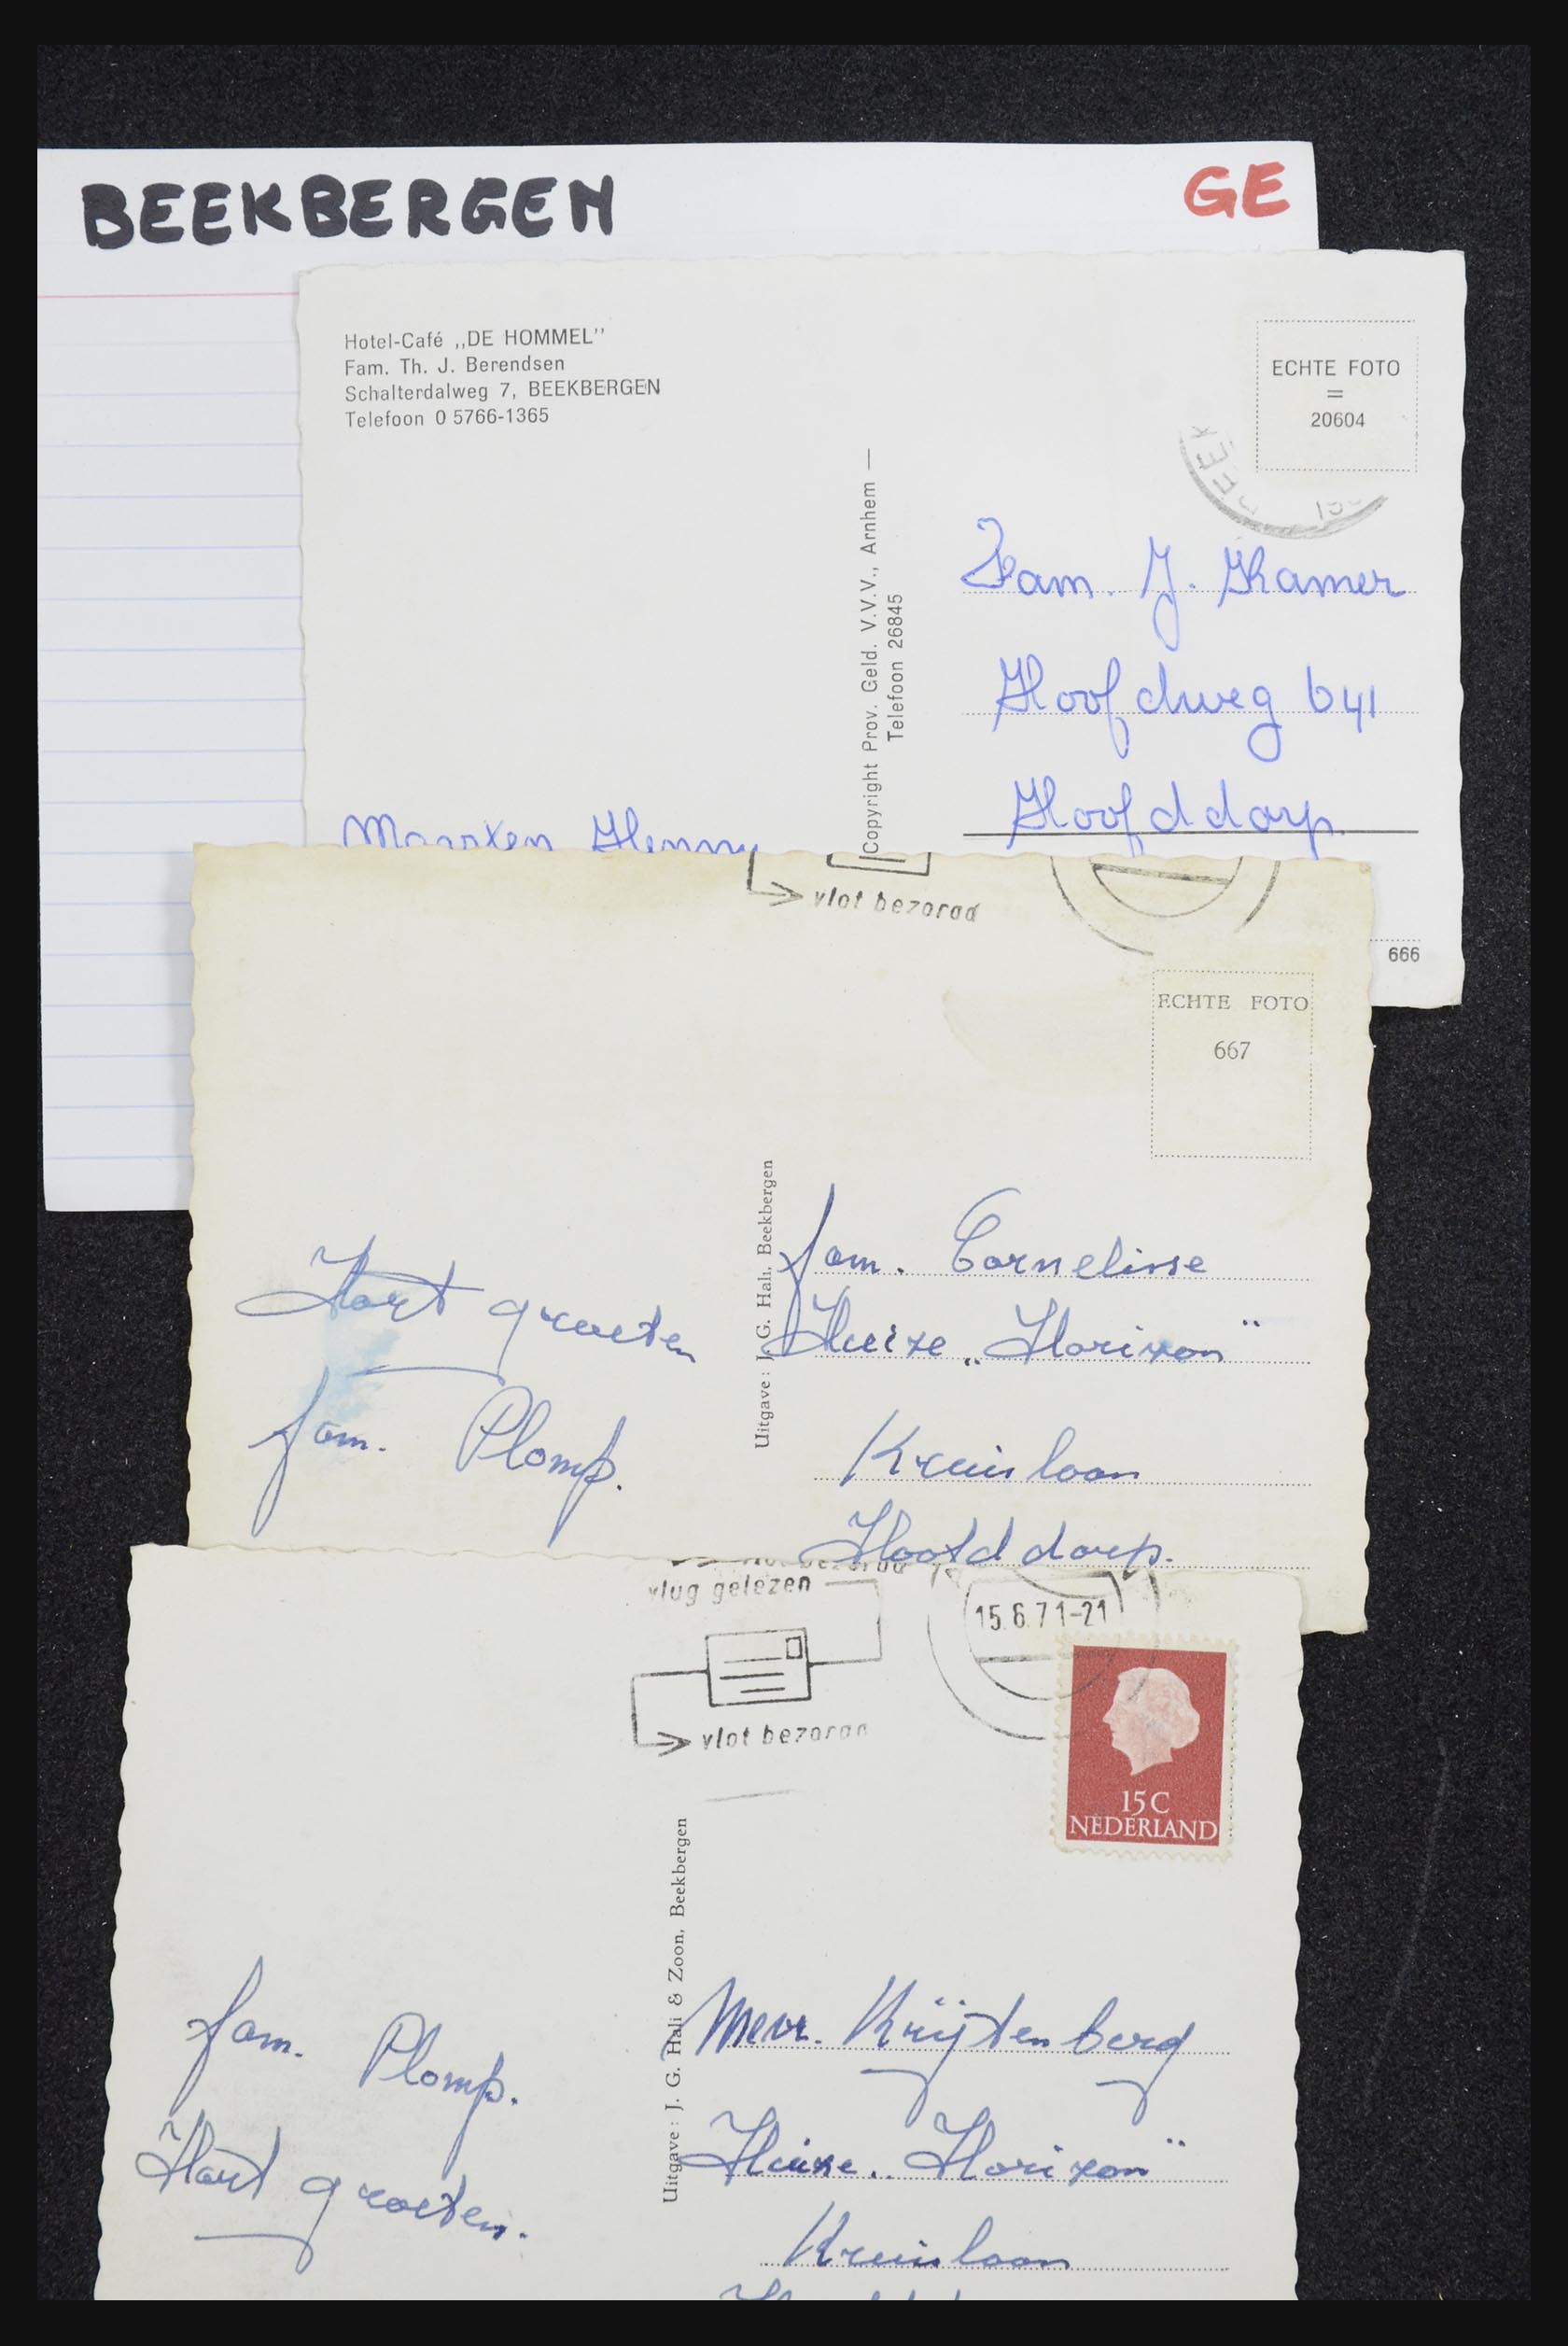 BEEKBERGEN
GE
Hotel-Café „DE HOMMEL”
Fam. Th. J. Berendsen
Schalterdalweg 7, BEEKBERGEN
Telefoon 0 5766-1365
ECHTE FOTO
=
20604
Copyright Prov. Geld. V.V.V., Arnhem —
Telefoon 26845
Fam. J. Khamer
Hoofdweg 641
Hoofddorp
Maarten Henny
666
vlot bezorgd
ECHTE FOTO
667
Uitgave: J. G. Hali, Beekbergen
Hart groeten
fam. Plomp.
fam. Cornelisse
Huize „Horizon”
Kruislaan
Hoofddorp.
vlug gelezen
vlot bezorgd
15.6.71-21
15 C
NEDERLAND
Uitgave: J. G. Hali & Zoon, Beekbergen
fam. Plomp.
Hart groeten.
Mevr. Krijtenberg
Huize „Horizon”
Kruislaan